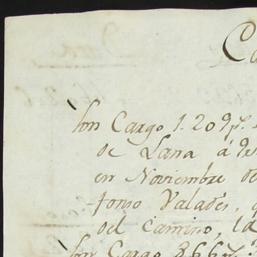 Ca
Son Cargo 1.209p.
de Lana á
en Noviembre de
fonso Valadés,
del camino, la
Son Cargo 366p.